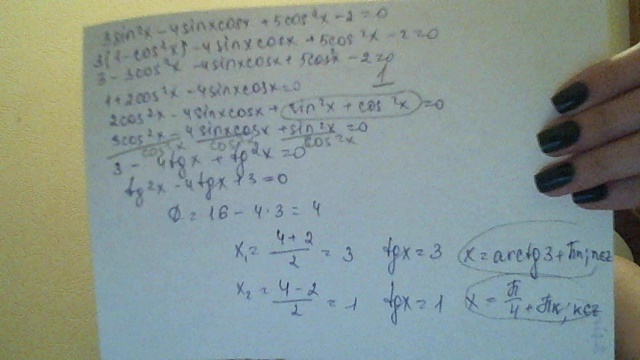 3sin²x - 4sinxcosx + 5cos²x - 2 = 0
3(1-cos²x) - 4sinxcosx + 5cos²x - 2 = 0
3 - 3cos²x - 4sinxcosx + 5cos²x - 2 = 0
1 + 2cos²x - 4sinxcosx = 0
1
2cos²x - 4sinxcosx + sin²x + cos²x = 0
3cos²x - 4sinxcosx + sin²x = 0
cos²x cos²x cos²x
3 - 4tgx + tg²x = 0
tg²x - 4tgx + 3 = 0
D = 16 - 4·3 = 4
x₁ = (4+2)/2 = 3 tgx = 3 x = arctg3 + πn; n∈z
x₂ = (4-2)/2 = 1 tgx = 1 x = π/4 + πk; k∈z